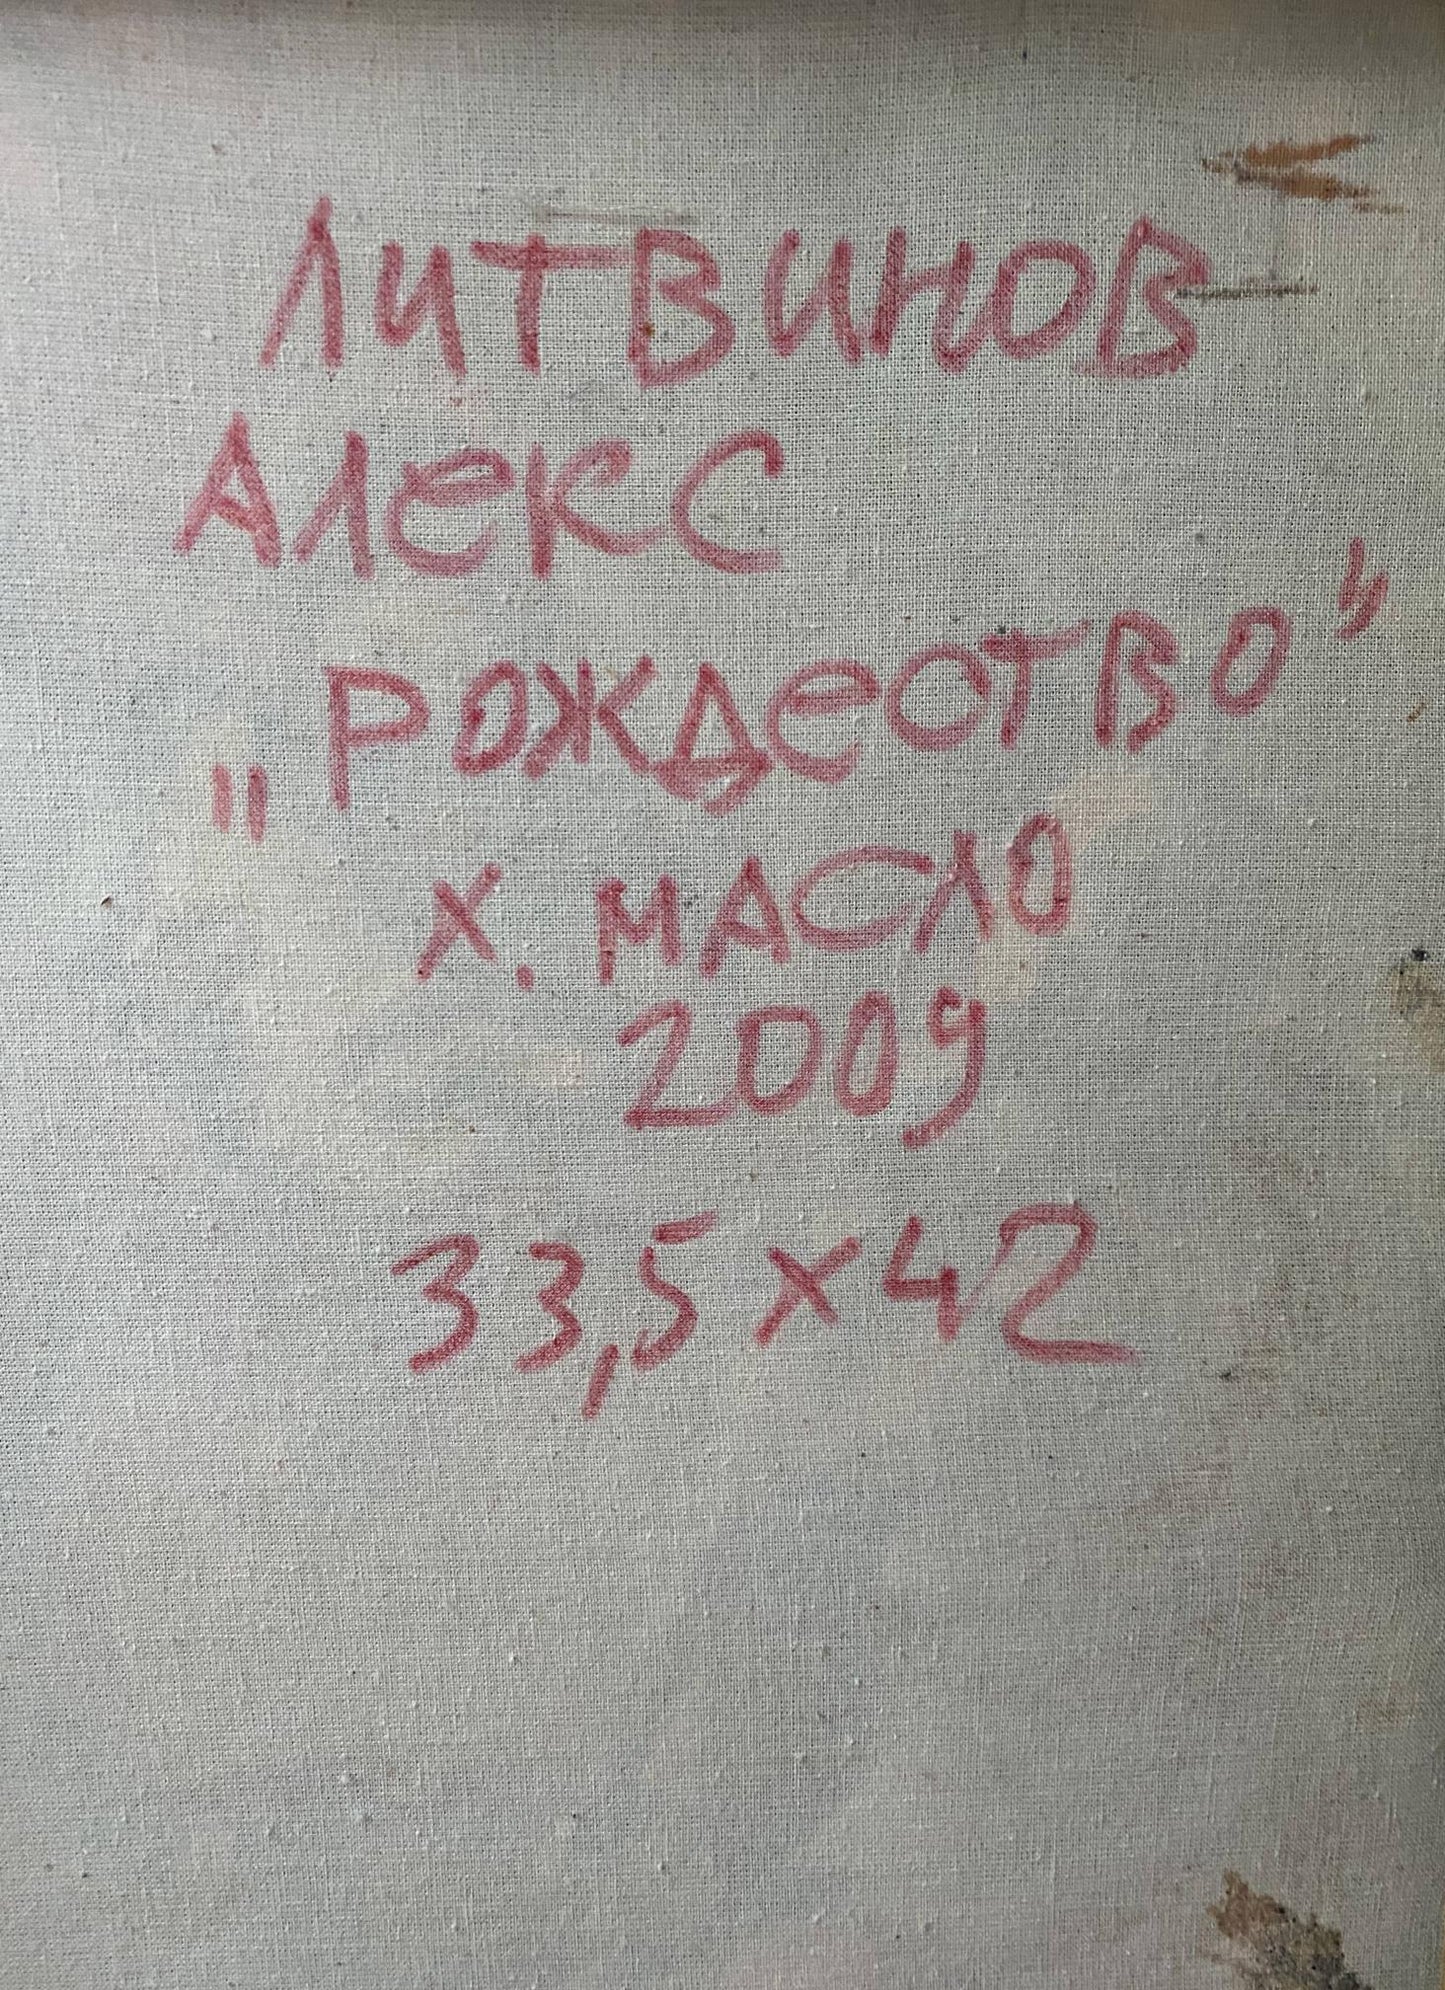 ЛИТВИНОВ
АЛЕКС
"РОЖДЕСТВО"
Х. МАСЛО
2009
33,5 х 42